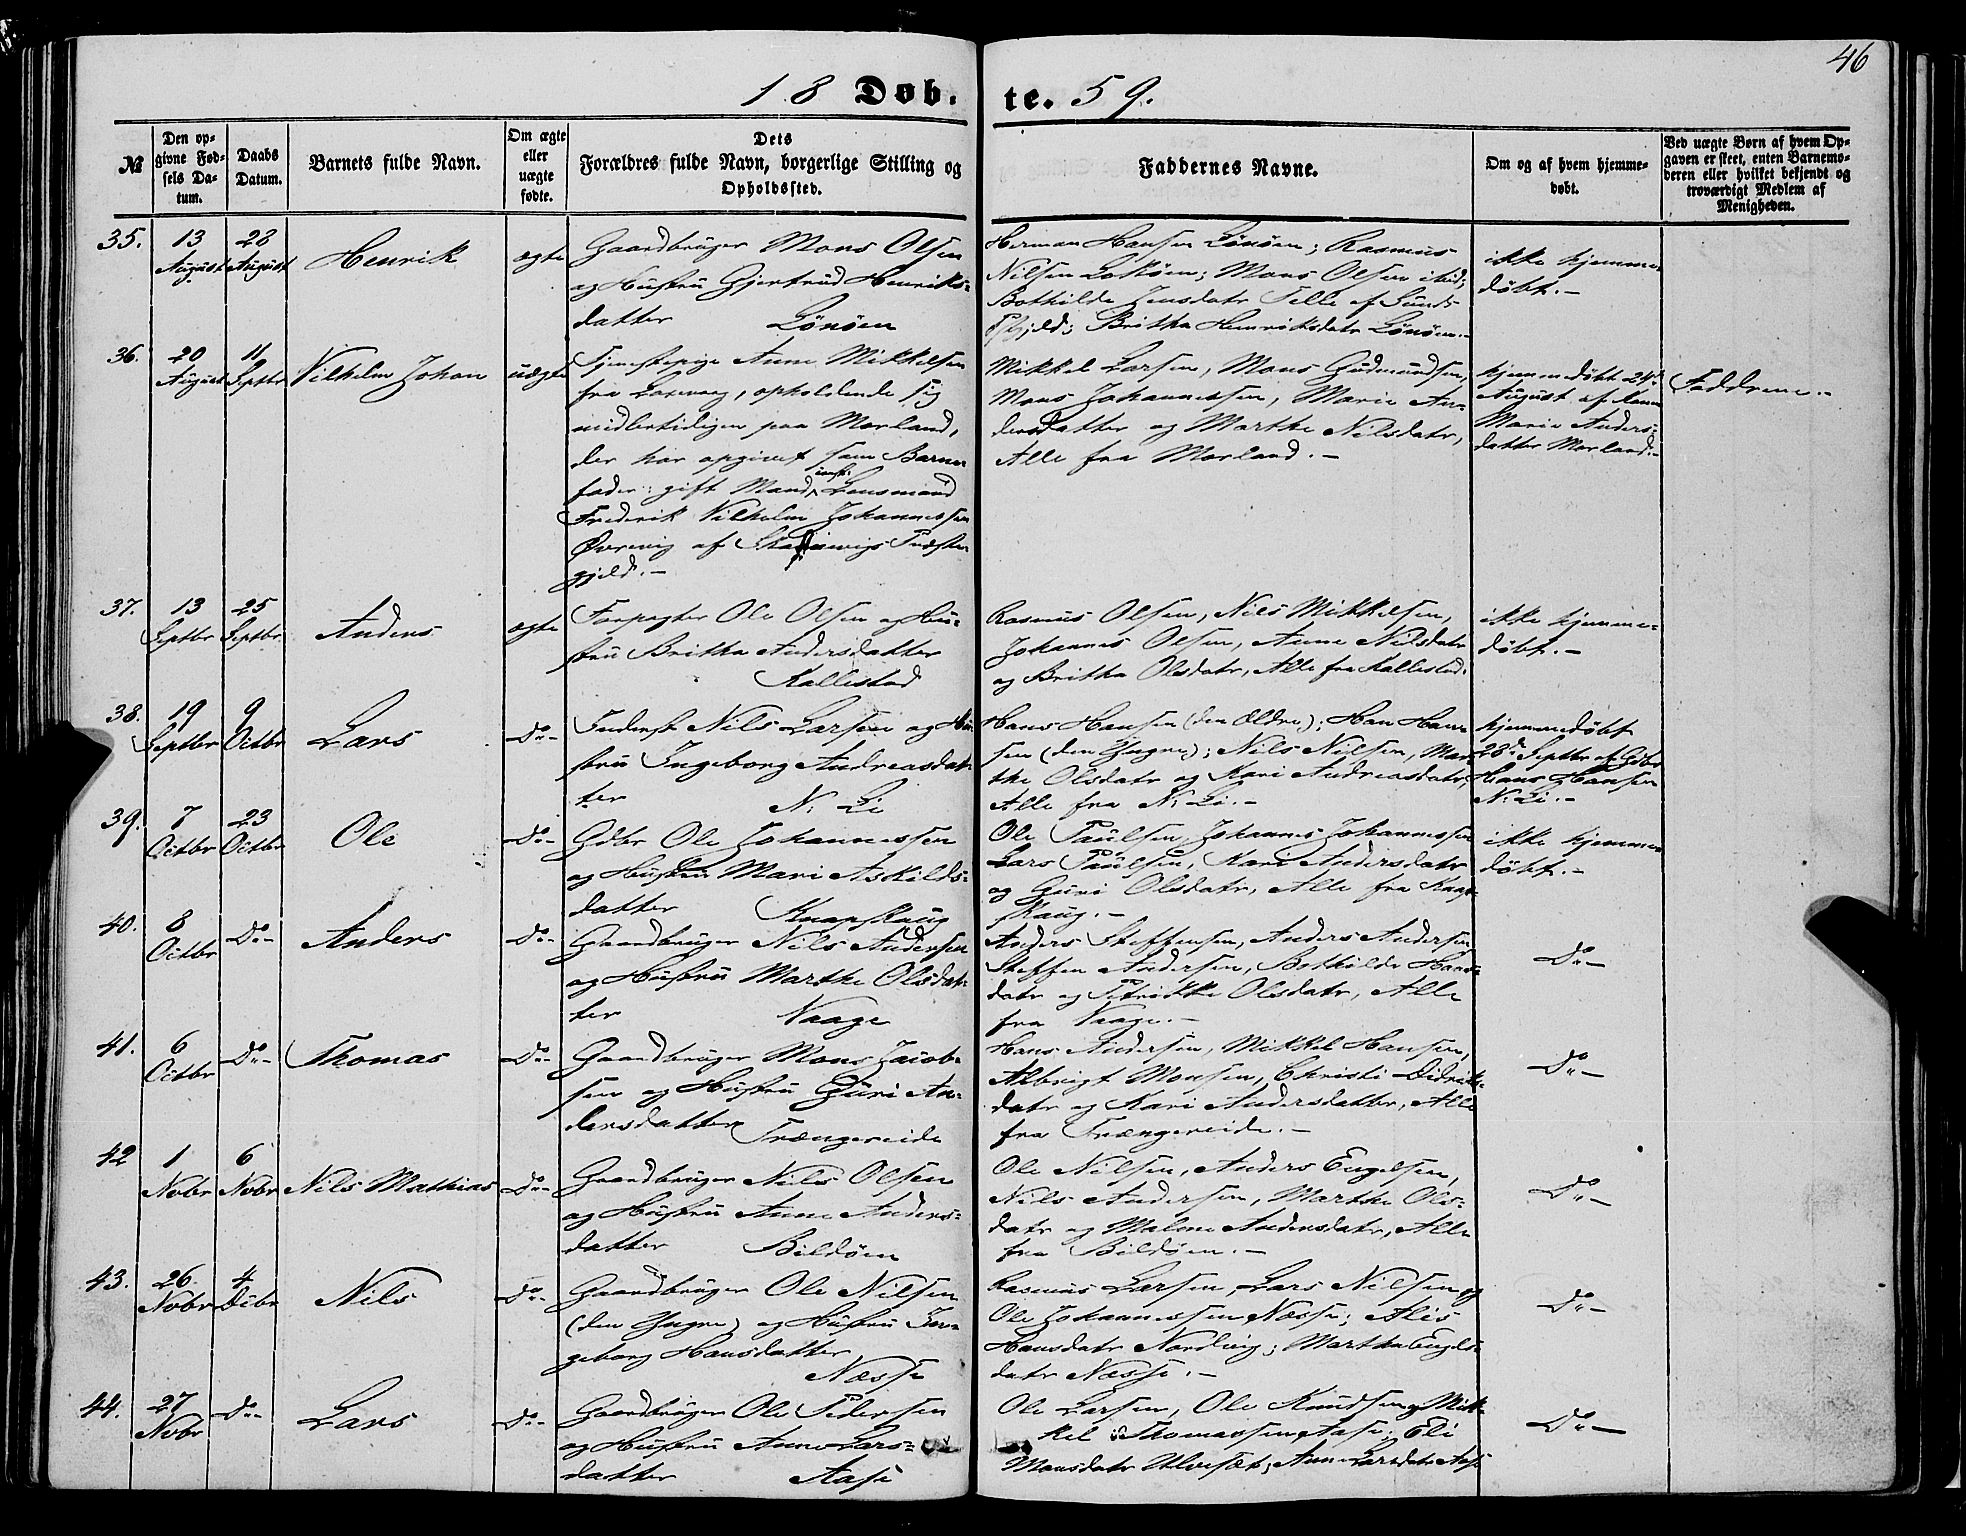 46
18 Døb-te. 59.
№
Den opgivne Fødsels Datum.
Daabs Datum.
Barnets fulde Navn.
Om ægte eller uægte fødte.
Dets Forældres fulde Navn, borgerlige Stilling og Opholdssted.
Faddernes Navne.
Om og af hvem hjemmedøbt.
Ved uægte Børn af hvem Opgaven er skeet, enten Barnemoderen eller hvilket bekjendt og troværdigt Medlem af Menigheden.
35.
13 August
28 August
Henrik
ægte
Gaardbruger Mons Olsen
og Hustru Gjertrud Henriks-
datter Lønøen
Herman Hansen Lønøen; Rasmus
Nilsen Lokøen; Mons Olsen ibid;
Bothilde Jensdatr Telle af Sunds
Pgjeld; Britha Henriksdatr Lønøen.-
ikke hjemme-
døbt.-
36.
20 August
11 Septbr
Vilhelm Johan
uægte
Tjenestepige Anne Mikkelsen
fra , opholdende sig
midlertidigen paa Morland,
der har opgivet som Barne-
fader: gift Mand, const. Lensmand
Frederik Vilhelm Johannessen
Øvrevig af Præste-
gjeld.-
Mikkel Larsen, Mons Gudmundsen,
Mons Johannessen, Marie An-
dersdatter og Marthe Nilsdatr,
Alle fra Morland.-
hjemmedøbt 24d
August af
Marie Anders-
datter Morland.-
Faddrene.-
37.
13 Septbr
25 Septbr
Anders
ægte
Forpagter Ole Olsen og Hu-
stru Britha Andersdatter
Kallestad
Rasmus Olsen, Nils Mikkelsen,
Johannes Olsen, Anne Nilsdatr
og Britha Olsdatr, Alle fra Kallestad.
ikke hjemme-
døbt.-
38.
19 Septbr
9 Octbr
Lars
Do-
Inderst Nils Larsen og Hu-
stru Ingeborg Andreasdat-
ter N: Li
Hans Hansen (den Ældre); Han Han-
sen (den Yngre); Nils Nilsen, Mar-
the Olsdatr og Kari Andreasdatr,
Alle fra N: Li.-
hjemmedøbt
23d Septbr af Gdbr
Hans Hansen
N: Li.-
39.
7 Octbr
23 Octbr
Ole
Do-
Gdbr Ole Johannessen
og Hustru Mari Askilds-
datter Knapskaug
Ole Paulsen, Johannes Johannessen
Lars Paulsen, Kari Andersdatr
og Guri Olsdatr, Alle fra Knap-
skaug.-
ikke hjemme-
døbt.-
40.
8 Octbr
Do-
Anders
Do-
Gaardbruger Nils Andersen
og Hustru Marthe Olsdat-
ter Vaage
Anders Steffensen, Anders Andersen
Steffen Andersen, Bothilde Hans-
datr og Petrikke Olsdatr, Alle
fra Vaage.-
Do-
41.
6 Octbr
Do-
Thomas
Do-
Gaardbruger Mons Jacob-
sen og Hustru Guri An-
dersdatter Trængereide
Hans Andersen, Mikkel Hansen,
Albrigt Monsen, Christi Didriks-
datr og Kari Andersdatter, Alle
fra Trængereide.-
Do-
42
1 Novbr
6 Novbr
Nils Mathias
Do-
Gaardbruger Nils Olsen
og Hustru Anne Anders-
datter Bildøen
Ole Nilsen, Anders Engelsen,
Nils Andersen, Marthe Ols-
datr og Malene Andersdatr, Alle
fra Bildøen.-
Do-
43.
26 Novbr
4 Decbr
Nils
Do-
Gaardbruger Ole Nilsen
(den Yngre) og Hustru In-
geborg Hansdatter
Næsse
Rasmus Larsen, Lars Nilsen og
Ole Johannessen Næsse; Alis
Hansdatr Nordvig; Martha Engels-
datr Næsse.-
Do-
44.
27 Novbr
Do-
Lars
Do-
Gaardbruger Ole Pedersen
og Hustru Anne Lars-
datter Aase
Ole Larsen, Ole Knudsen og Mik-
kel Thomassen Aase; Eli
Monsdatr Ulvesæt; Anne Larsdatr Aase
Do-